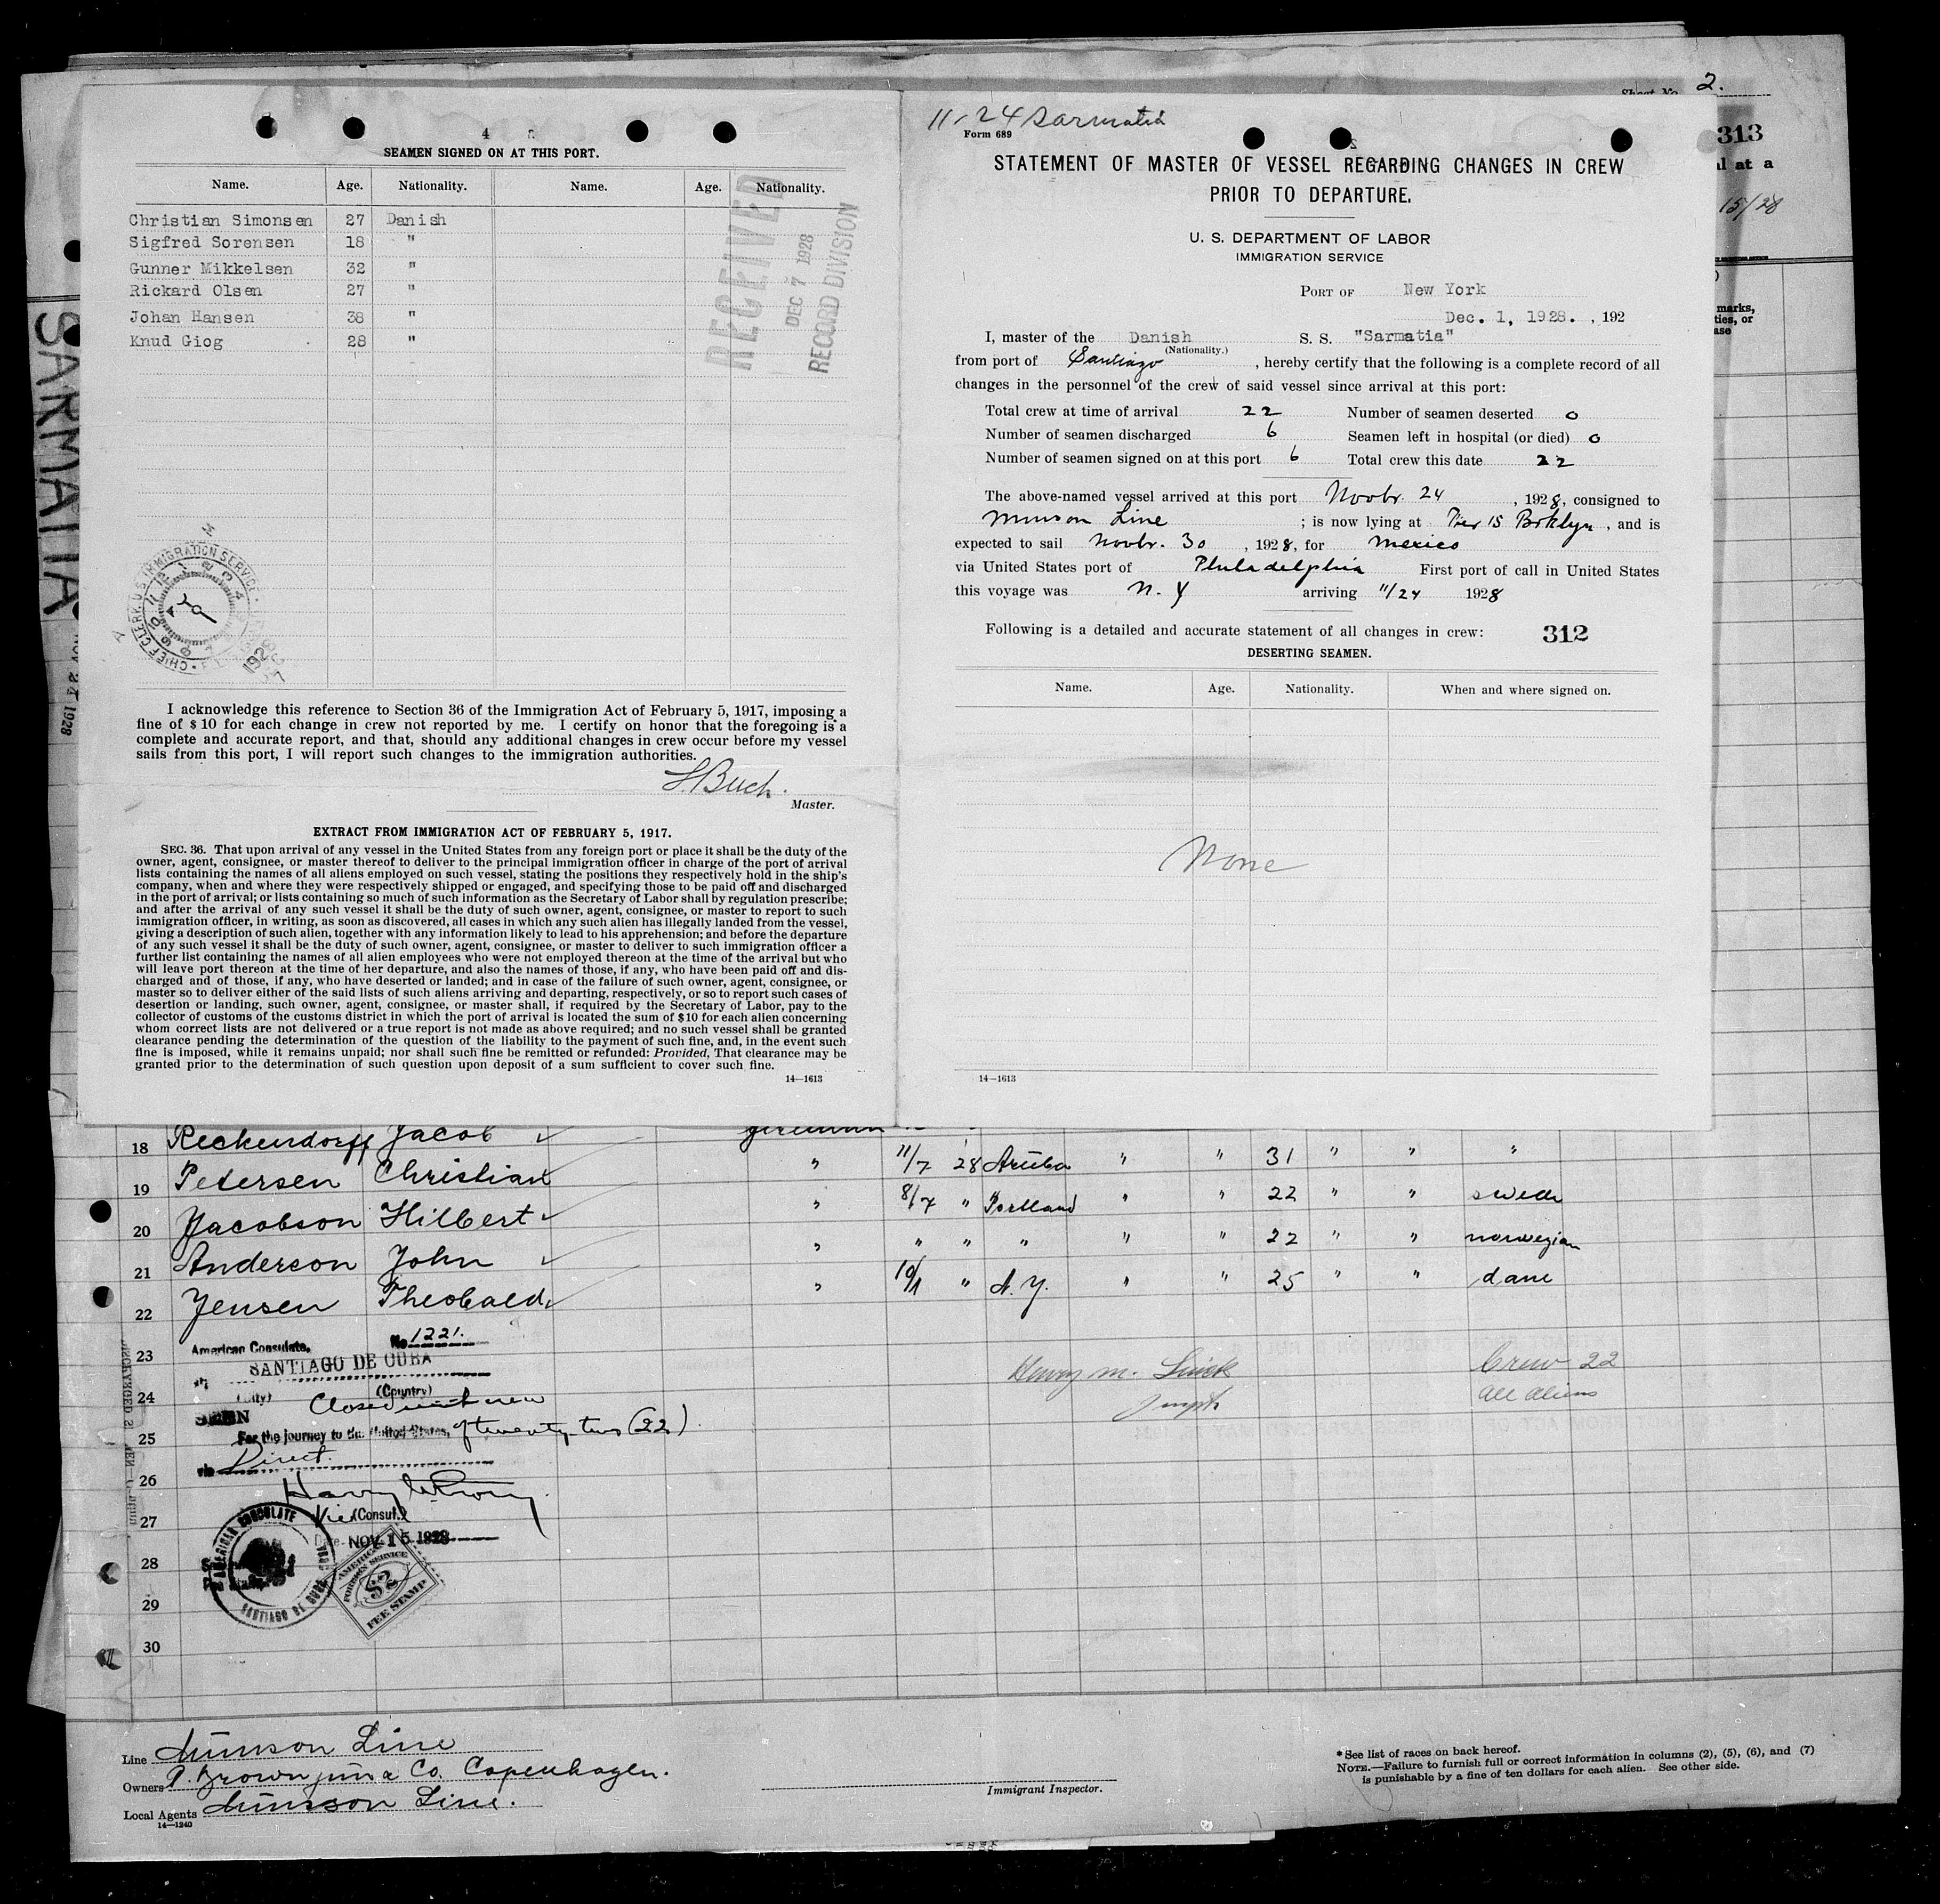 Sheet No. 2.
313
15/28
SARMATIA
NOV 24 1928
4
SEAMEN SIGNED ON AT THIS PORT.
Name. Age. Nationality. Name. Age. Nationality.
Christian Simonsen 27 Danish
Sigfred Sorensen 18 "
Gunner Mikkelsen 32 "
Rickard Olsen 27 "
Johan Hansen 38 "
Knud Giog 28 "
RECEIVED
DEC 7 1928
RECORD DIVISION
CHIEF CLERK U.S. IMMIGRATION SERVICE
I acknowledge this reference to Section 36 of the Immigration Act of February 5, 1917, imposing a
fine of $10 for each change in crew not reported by me. I certify on honor that the foregoing is a
complete and accurate report, and that, should any additional changes in crew occur before my vessel
sails from this port, I will report such changes to the immigration authorities.
Buch.
Master.
EXTRACT FROM IMMIGRATION ACT OF FEBRUARY 5, 1917.
SEC. 36. That upon arrival of any vessel in the United States from any foreign port or place it shall be the duty of the
owner, agent, consignee, or master thereof to deliver to the principal immigration officer in charge of the port of arrival
lists containing the names of all aliens employed on such vessel, stating the positions they respectively hold in the ship's
company, when and where they were respectively shipped or engaged, and specifying those to be paid off and discharged
in the port of arrival; or lists containing so much of such information as the Secretary of Labor shall by regulation prescribe;
and after the arrival of any such vessel it shall be the duty of such owner, agent, consignee, or master to report to such
immigration officer, in writing, as soon as discovered, all cases in which any such alien has illegally landed from the vessel,
giving a description of such alien, together with any information likely to lead to his apprehension; and before the departure
of any such vessel it shall be the duty of such owner, agent, consignee, or master to deliver to such immigration officer a
further list containing the names of all alien employees who were not employed thereon at the time of the arrival but who
will leave port thereon at the time of her departure, and also the names of those, if any, who have been paid off and dis-
charged and of those, if any, who have deserted or landed; and in case of the failure of such owner, agent, consignee, or
master so to deliver either of the said lists of such aliens arriving and departing, respectively, or so to report such cases of
desertion or landing, such owner, agent, consignee, or master shall, if required by the Secretary of Labor, pay to the
collector of customs of the customs district in which the port of arrival is located the sum of $10 for each alien concerning
whom correct lists are not delivered or a true report is not made as above required; and no such vessel shall be granted
clearance pending the determination of the question of the liability to the payment of such fine, and, in the event such
fine is imposed, while it remains unpaid; nor shall such fine be remitted or refunded: Provided, That clearance may be
granted prior to the determination of such question upon deposit of a sum sufficient to cover such fine.
14—1613
11-24 Sarmatia
Form 689
STATEMENT OF MASTER OF VESSEL REGARDING CHANGES IN CREW
PRIOR TO DEPARTURE.
U. S. DEPARTMENT OF LABOR
IMMIGRATION SERVICE
PORT OF New York
Dec. 1, 1928. , 192
I, master of the Danish S. S. "Sarmatia"
(Nationality.)
from port of Santiago , hereby certify that the following is a complete record of all
changes in the personnel of the crew of said vessel since arrival at this port:
Total crew at time of arrival 22 Number of seamen deserted 0
Number of seamen discharged 6 Seamen left in hospital (or died) 0
Number of seamen signed on at this port 6 Total crew this date 22
The above-named vessel arrived at this port Novbr. 24 , 1928, consigned to
Munson Line ; is now lying at Pier 15 Broklyn , and is
expected to sail Novbr. 30 , 1928, for Mexico
via United States port of Philadelphia First port of call in United States
this voyage was N. Y arriving 11/24 1928
Following is a detailed and accurate statement of all changes in crew: 312
DESERTING SEAMEN.
Name. Age. Nationality. When and where signed on.
None
14—1613
18 Reckendorff Jacob
19 Petersen Christian " 11/7 28 Aruba " " 31 " " "
20 Jacobson Hilbert " 8/7 " Portland " " 22 " " swede
21 Anderson John " " " " " " 22 " " norwegian
22 Jensen Theobald " 10/1 " N.Y. " " 25 " " dane
23 American Consulate, No 1221.
SANTIAGO DE CUBA
24 (City) (Country)
SEEN Closed with crew
25 For the journey to the United States, of twenty-two (22)
via Direct.
26
27 Vice (Consul)
Date NOV 15 1928
28
29
30
AMERICAN CONSULATE
SANTIAGO DE CUBA
AMERICAN FOREIGN SERVICE
$2
FEE STAMP
Henry M.
Crew 22
all aliens
Line Munson Line
Owners A. Brown jun & Co. Copenhagen.
Local Agents Munson Line.
14—1240
Immigrant Inspector.
*See list of races on back hereof.
NOTE.—Failure to furnish full or correct information in columns (2), (5), (6), and (7)
is punishable by a fine of ten dollars for each alien. See other side.